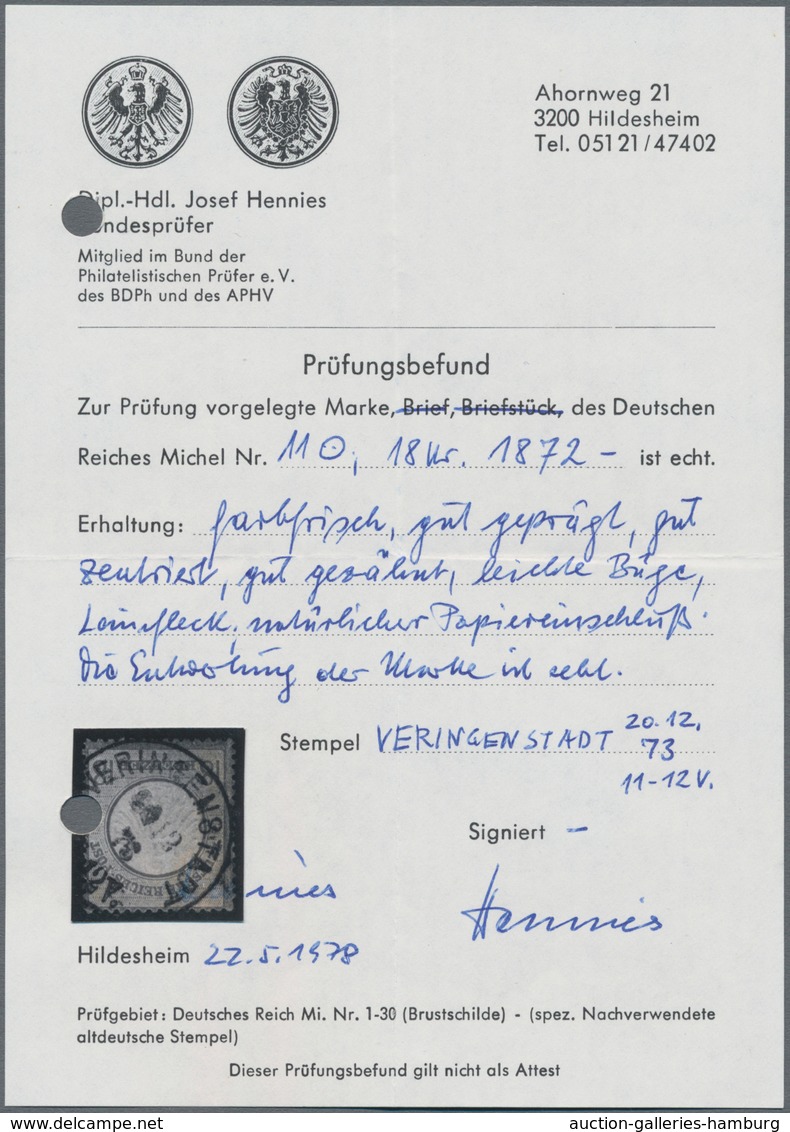 Ahornweg 21
3200 Hildesheim
Tel. 05121/47402
Dipl.-Hdl. Josef Hennies
Bundesprüfer
Mitglied im Bund der
Philatelistischen Prüfer e. V.
des BDPh und des APHV
Prüfungsbefund
Zur Prüfung vorgelegte Marke, Brief, Briefstück, des Deutschen
Reiches Michel Nr. 11 ⊙, 18 Kr. 1872 – ist echt.
Erhaltung: farbfrisch, gut geprägt, gut
zentriert, gut gezähnt, leichte Büge,
Leimfleck, natürlicher Papiereinschluß.
Die Entwertung der Marke ist echt.
Stempel VERINGENSTADT 20.12.
73
11-12 V.
VERINGENSTADT
Signiert –
nnies
Hennies
Hildesheim 22.5.1978
Prüfgebiet: Deutsches Reich Mi. Nr. 1-30 (Brustschilde) - (spez. Nachverwendete
altdeutsche Stempel)
Dieser Prüfungsbefund gilt nicht als Attest
auction-galleries-hamburg